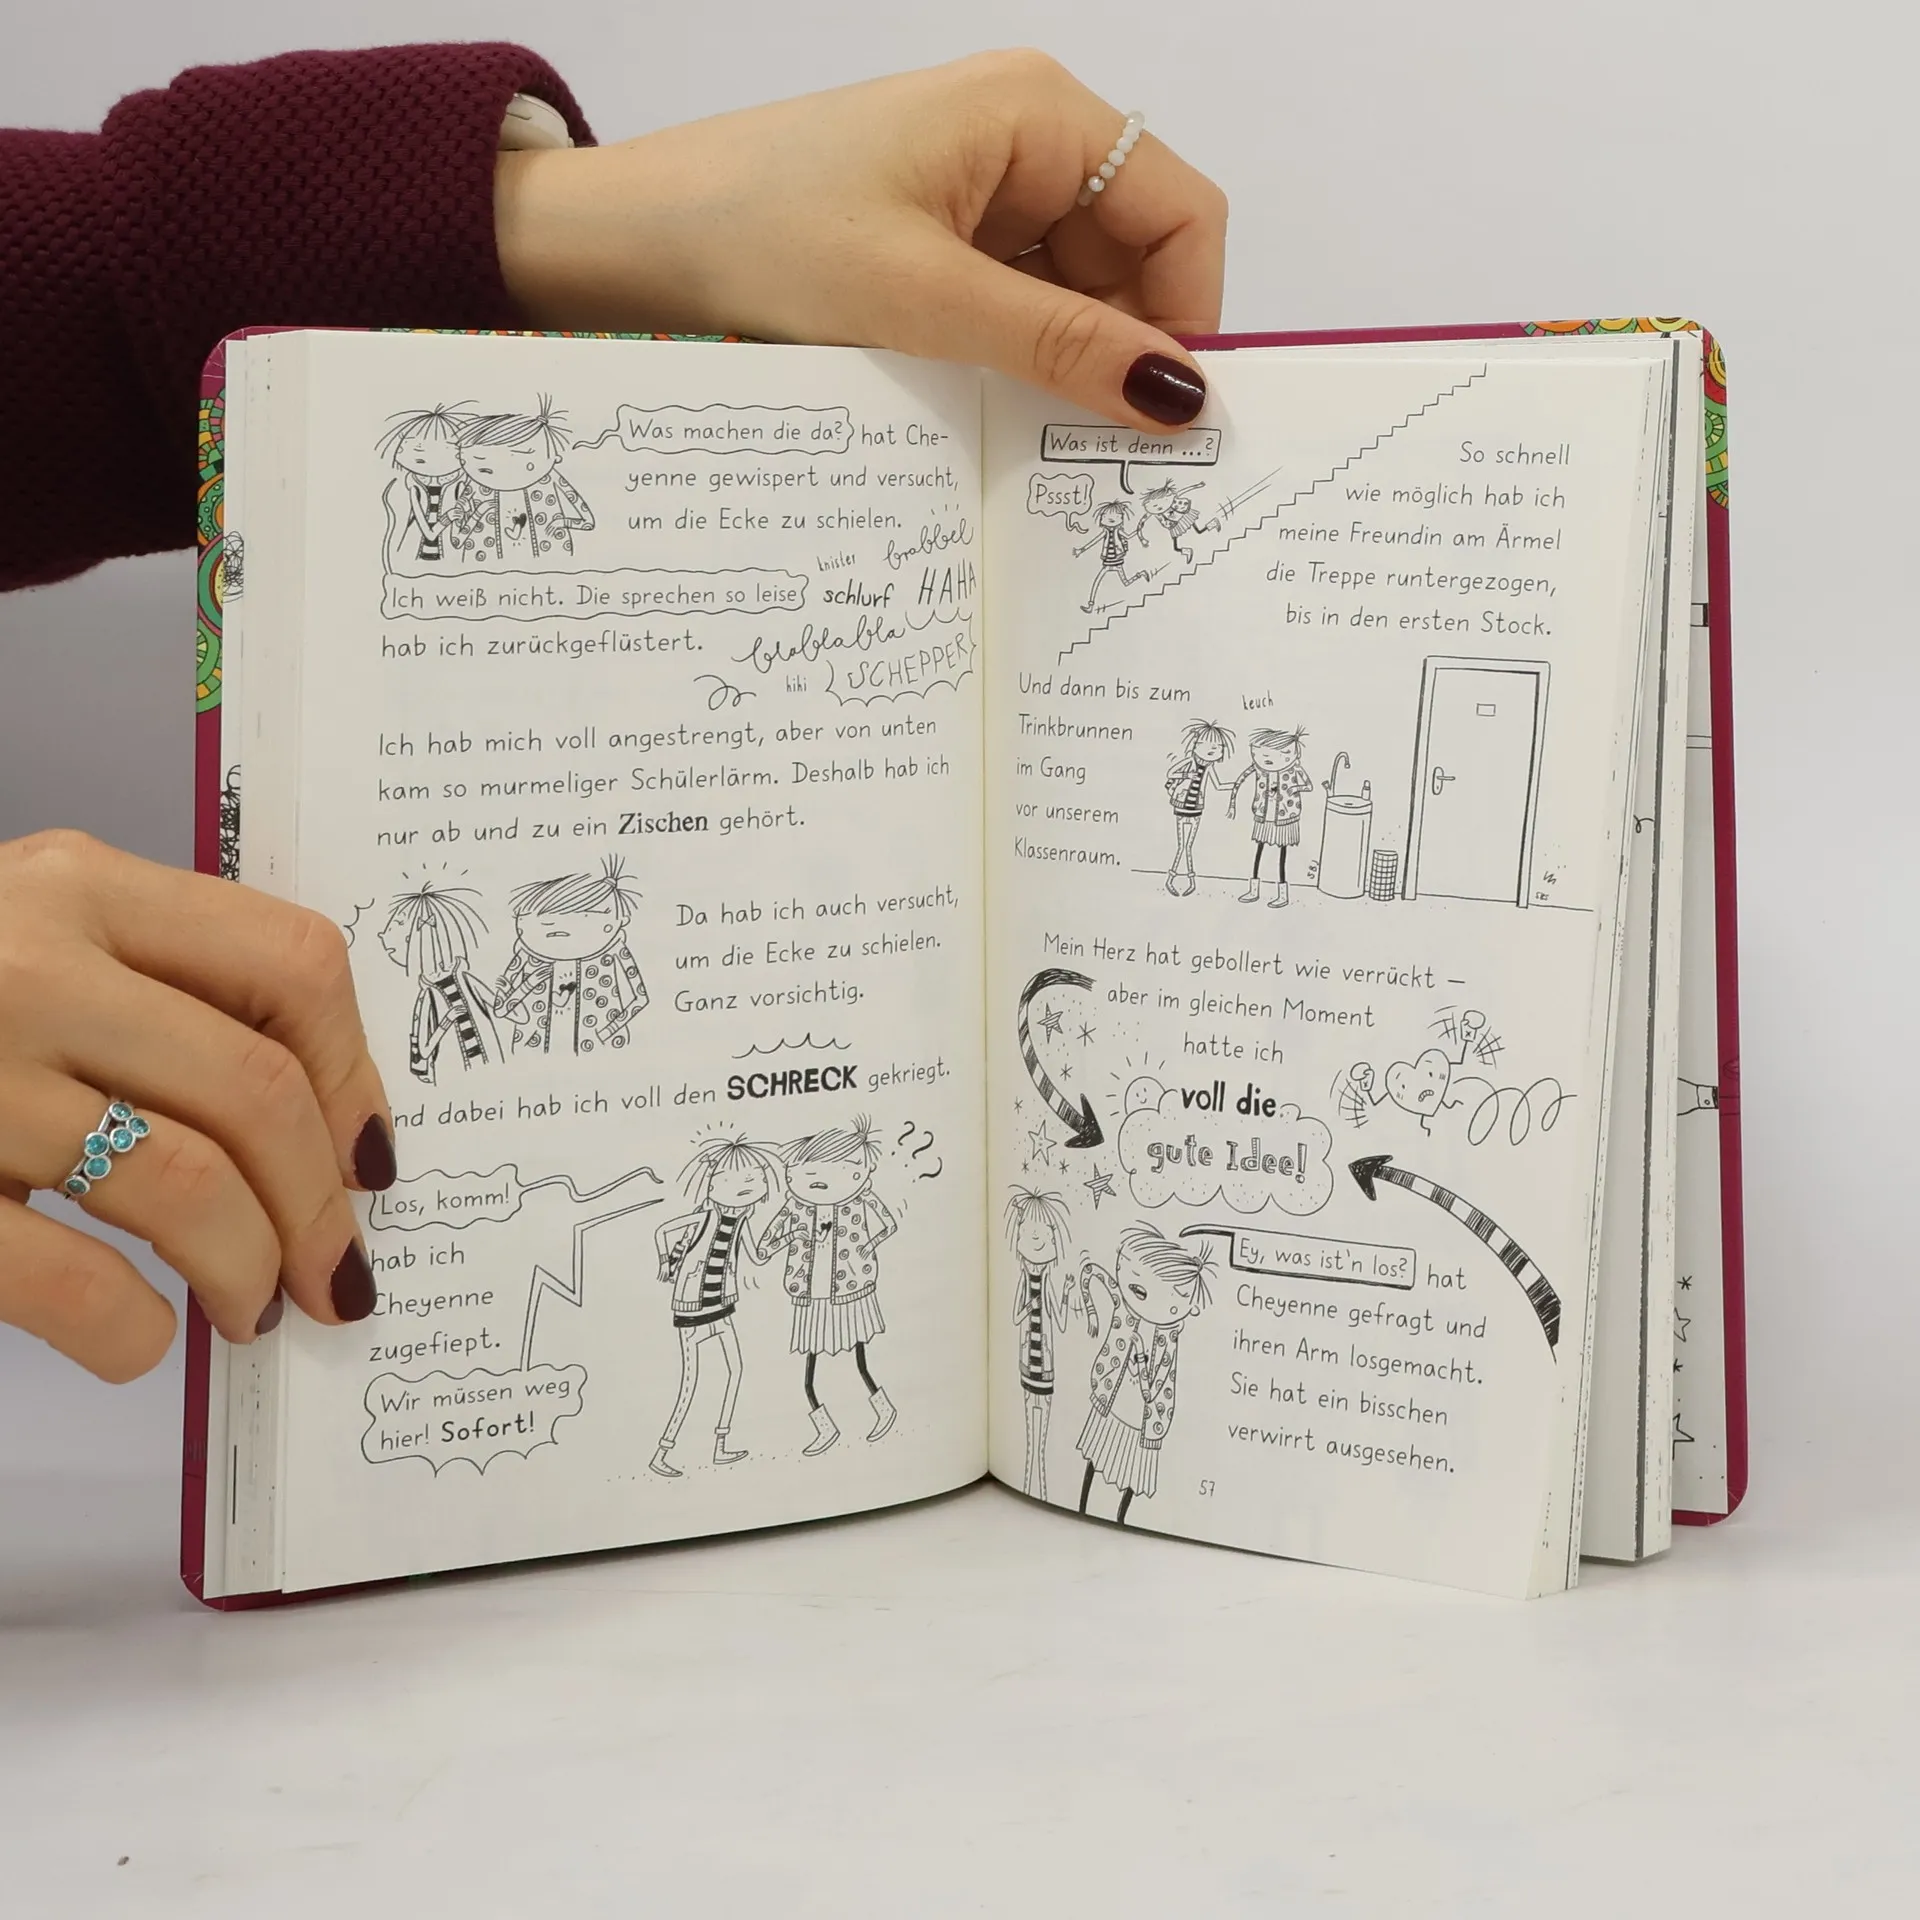 Was machen die da? hat Che-
yenne gewispert und versucht,
um die Ecke zu schielen.
knister brabbel
Ich weiß nicht. Die sprechen so leise schlurf HAHA
hab ich zurückgeflüstert. blablabla
hihi SCHEPPER
Ich hab mich voll angestrengt, aber von unten
kam so murmeliger Schülerlärm. Deshalb hab ich
nur ab und zu ein Zischen gehört.
Da hab ich auch versucht,
um die Ecke zu schielen.
Ganz vorsichtig.
nd dabei hab ich voll den SCHRECK gekriegt.
???
Los, komm!
hab ich
Cheyenne
zugefiept.
Wir müssen weg
hier! Sofort!
Was ist denn ...?
Pssst!
So schnell
wie möglich hab ich
meine Freundin am Ärmel
die Treppe runtergezogen,
bis in den ersten Stock.
Und dann bis zum
Trinkbrunnen
im Gang
vor unserem
Klassenraum.
keuch
Mein Herz hat gebollert wie verrückt –
aber im gleichen Moment
hatte ich
voll die
gute Idee!
Ey, was ist'n los? hat
Cheyenne gefragt und
ihren Arm losgemacht.
Sie hat ein bisschen
verwirrt ausgesehen.
57